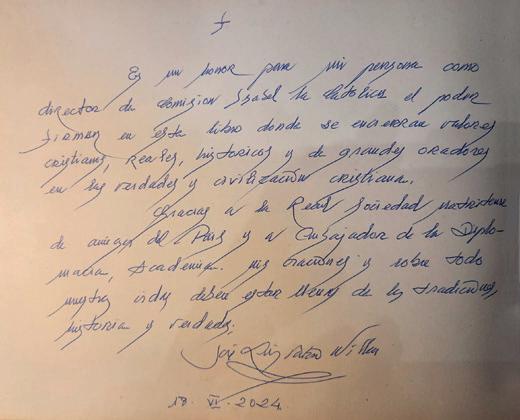 Es un honor para mi persona como
director de Comision Isabel la Catolica el poder
firmar en este libro donde se encierran valores
cristianos, Reales, historicos y de grandes oradores
en las verdades y civilización cristiana.
Gracias a la Real Sociedad matritense
de amigos del Pais y a Embajador de la Diplo-
macia, Academia. mis oraciones y sobre todo
nuestra vida deben estar llenas de las tradiciones,
historia y verdades.
José Luis
18. VI. 2024.